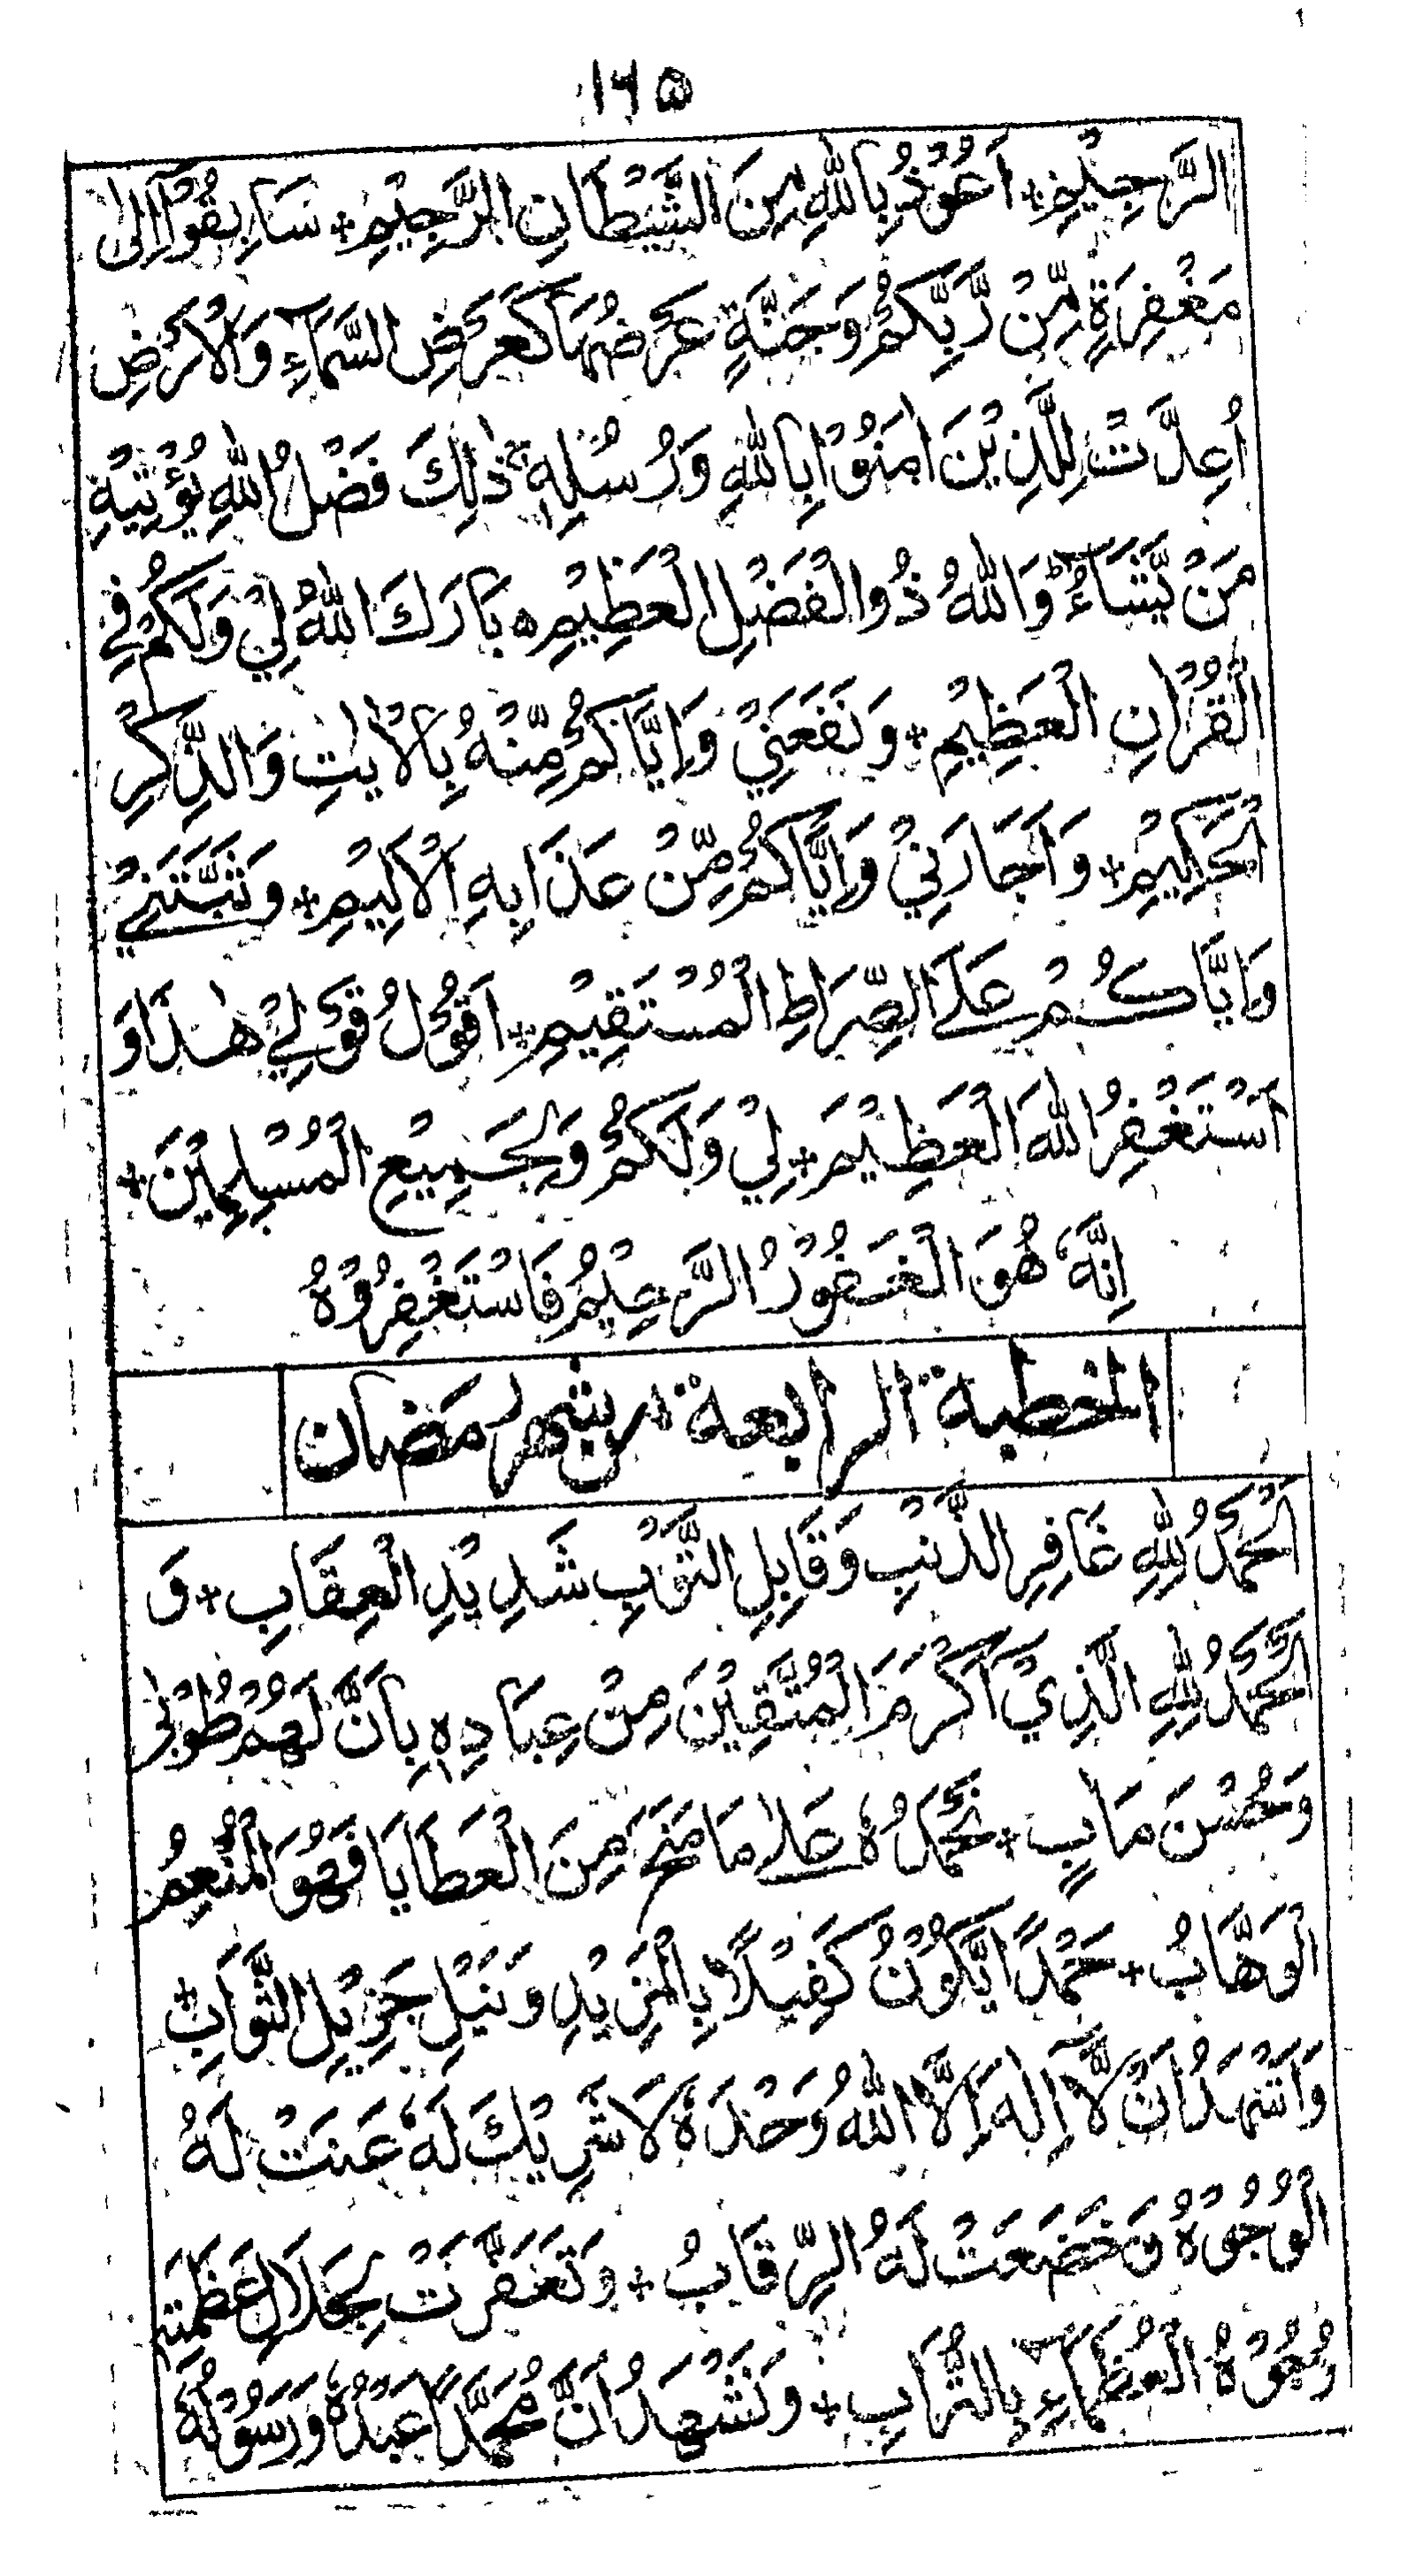 ۱۶۵
الرَّحِيْمِ + اَعُوْذُ بِاللّٰهِ مِنَ الشَّيْطَانِ الرَّجِيْمِ + سَابِقُوْآ اِلٰى
مَغْفِرَةٍ مِّنْ رَّبِّكُمْ وَجَنَّةٍ عَرْضُهَا كَعَرْضِ السَّمَآءِ وَالْاَرْضِ
اُعِدَّتْ لِلَّذِيْنَ اٰمَنُوْا بِاللّٰهِ وَرُسُلِهٖ ذٰلِكَ فَضْلُ اللّٰهِ يُؤْتِيْهِ
مَنْ يَّشَآءُ وَاللّٰهُ ذُو الْفَضْلِ الْعَظِيْمِ ه بَارَكَ اللّٰهُ لِيْ وَلَكُمْ فِي
الْقُرْاٰنِ الْعَظِيْمِ + وَنَفَعَنِيْ وَاِيَّاكُمْ مِّنْهُ بِالْاٰيٰتِ وَالذِّكْرِ
الْحَكِيْمِ + وَاَجَارَنِيْ وَاِيَّاكُمْ مِّنْ عَذَابِهِ الْاَلِيْمِ + وَثَبَّتَنِيْ
وَاِيَّاكُمْ عَلَى الصِّرَاطِ الْمُسْتَقِيْمِ + اَقُوْلُ قَوْلِيْ هٰذَا وَ
اَسْتَغْفِرُ اللّٰهَ الْعَظِيْمَ + لِيْ وَلَكُمْ وَلِجَمِيْعِ الْمُسْلِمِيْنَ +
اِنَّهٗ هُوَ الْغَفُوْرُ الرَّحِيْمُ فَاسْتَغْفِرُوْهُ
الخطبة الرابعة من شهر رمضان
اَلْحَمْدُ لِلّٰهِ غَافِرِ الذَّنْبِ وَقَابِلِ التَّوْبِ شَدِيْدِ الْعِقَابِ + وَ
الْحَمْدُ لِلّٰهِ الَّذِيْ اَكْرَمَ الْمُتَّقِيْنَ مِنْ عِبَادِهٖ بِاَنَّ لَهُمْ طُوْبٰى
وَحُسْنَ مَاٰبٍ + نَحْمَدُهٗ عَلٰى مَا مَنَحَ مِنَ الْعَطَايَا فَهُوَ الْمُنْعِمُ
الْوَهَّابُ + حَمْدًا يَّكُوْنُ كَفِيْلًا بِالْمَزِيْدِ وَنَيْلِ جَزِيْلِ الثَّوَابِ +
وَاَشْهَدُ اَنْ لَّآ اِلٰهَ اِلَّا اللّٰهُ وَحْدَهٗ لَا شَرِيْكَ لَهٗ عَنَتْ لَهُ
الْوُجُوْهُ وَخَضَعَتْ لَهُ الرِّقَابُ + وَتَعَفَّرَتْ لِجَلَالِ عَظَمَتِهٖ
وُجُوْهُ الْعُظَمَآءِ بِالتُّرَابِ + وَنَشْهَدُ اَنَّ مُحَمَّدًا عَبْدُهٗ وَرَسُوْلُهُ